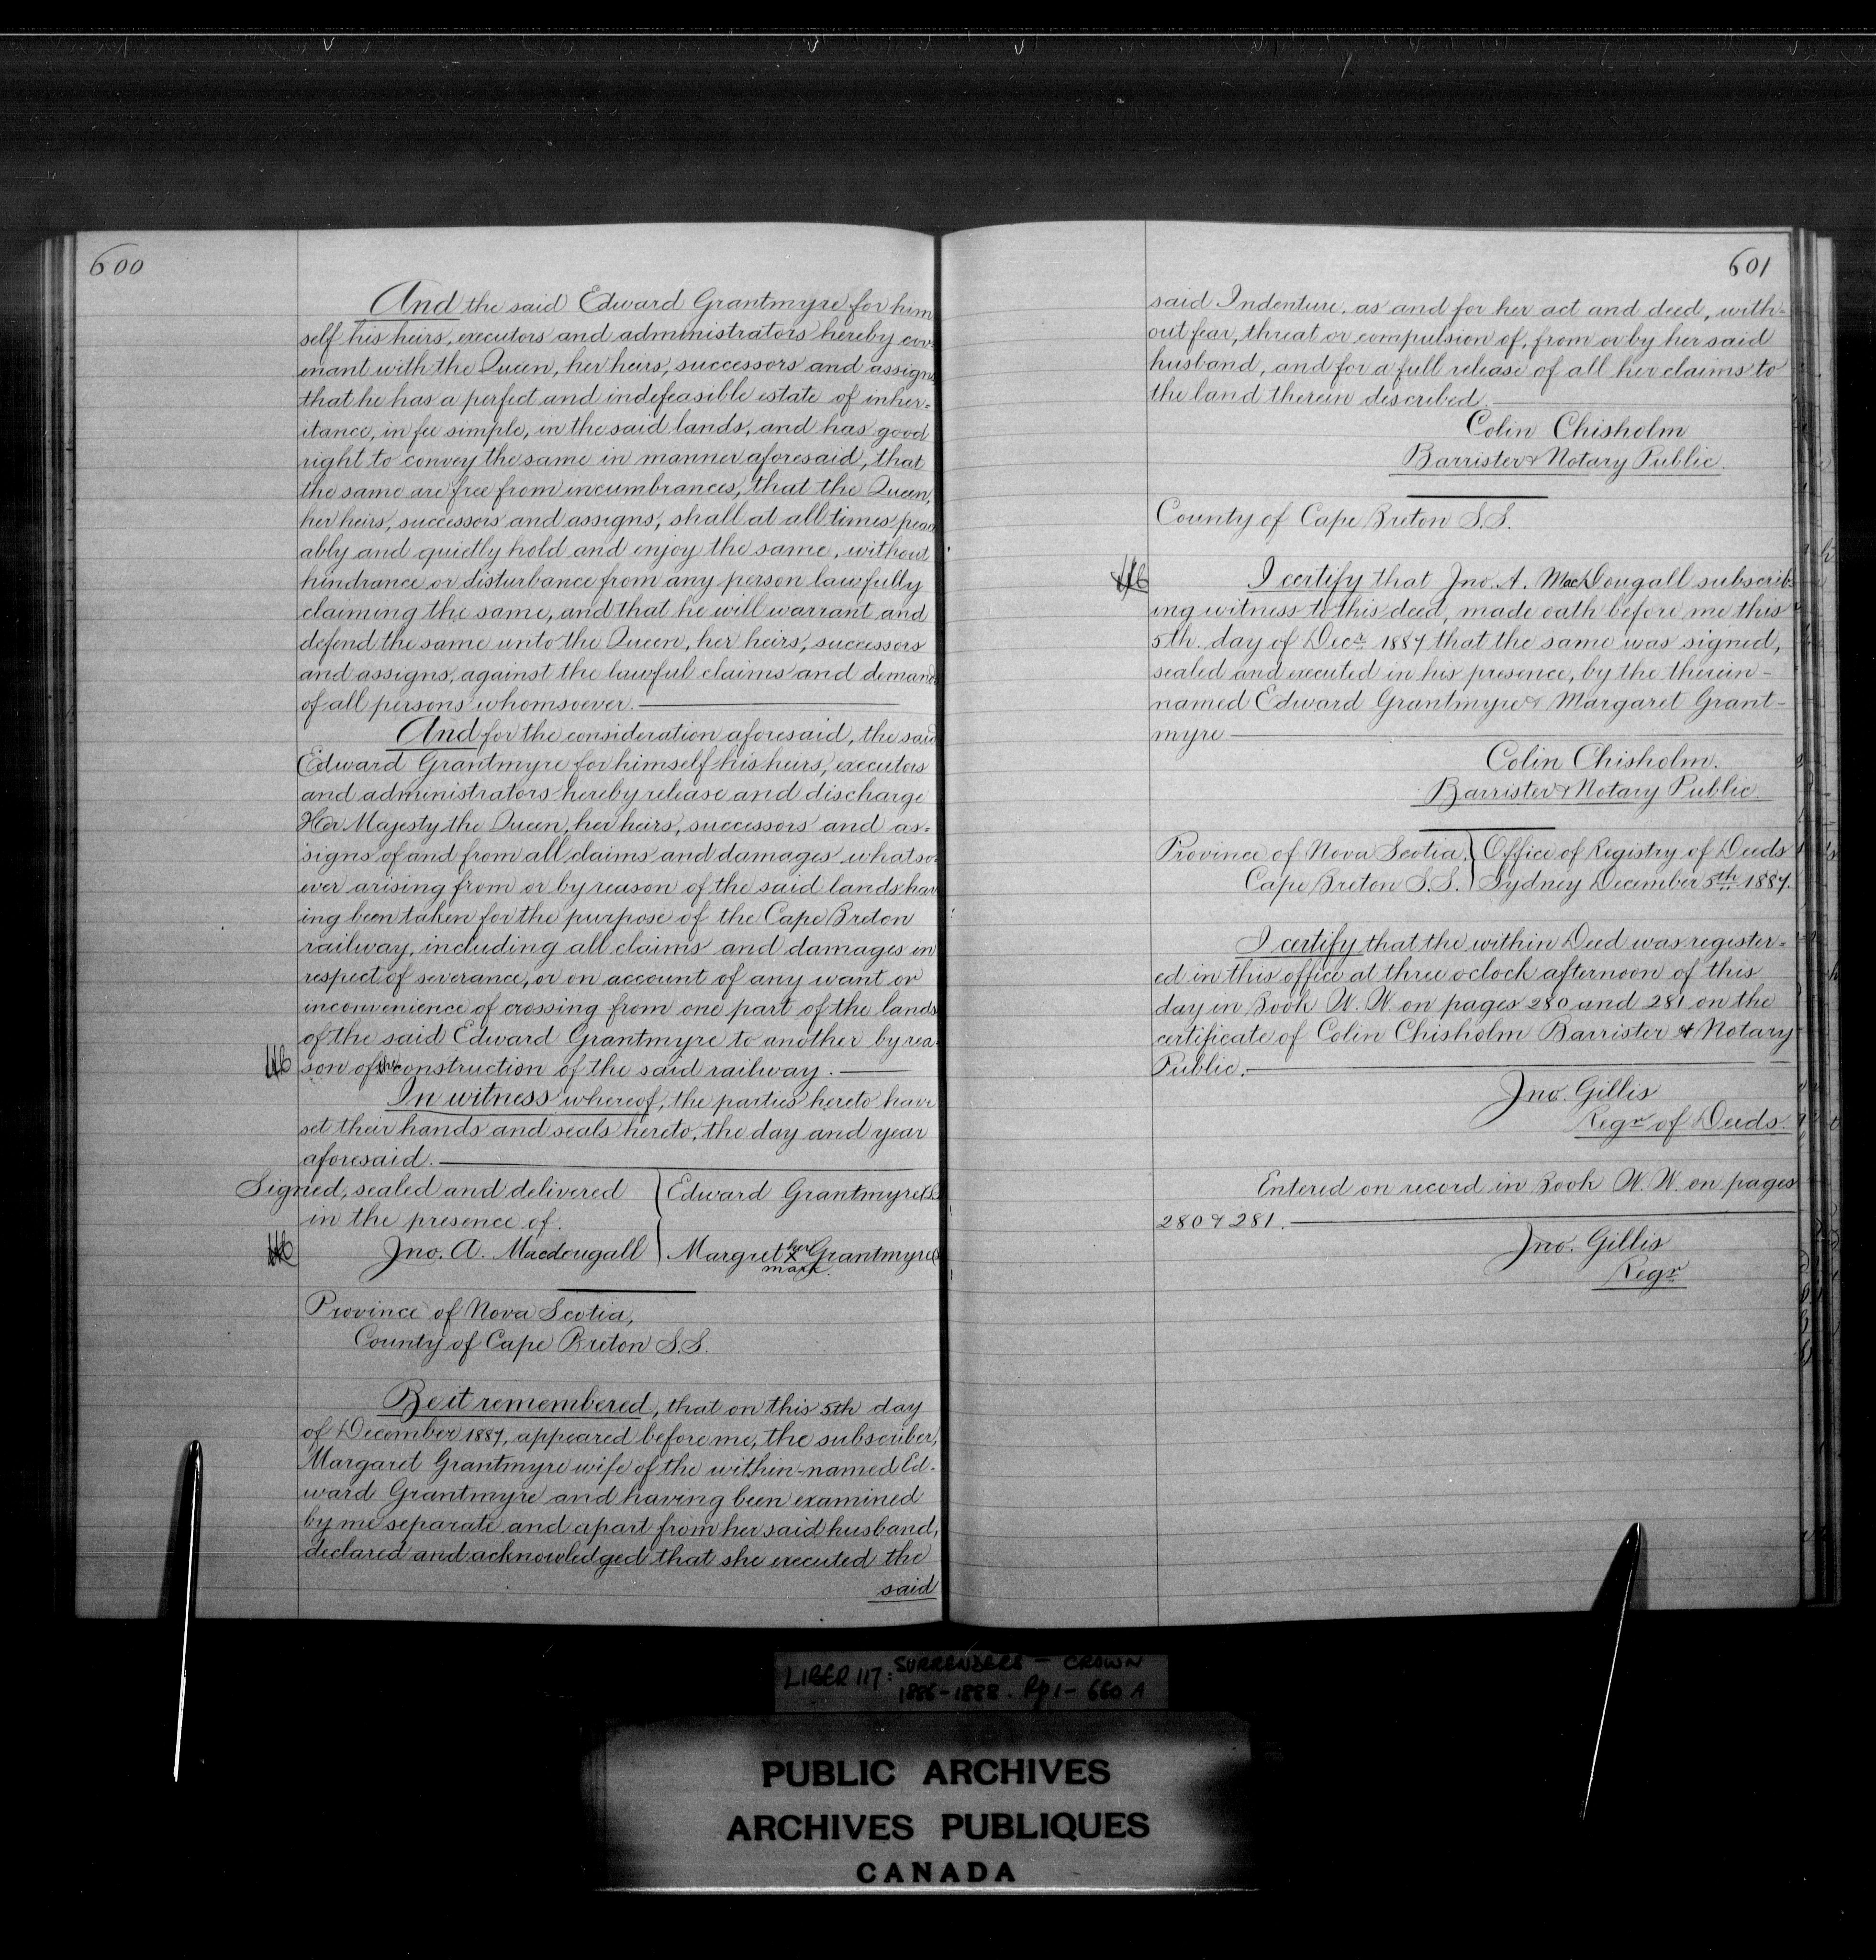 600
And the said Edward Grantmyre for him
self his heirs, executors and administrators hereby cov-
enant with the Queen, her heirs, successors and assigns
that he has a perfect and indefeasible estate of inher-
itance, in fee simple, in the said lands, and has good
right to convey the same in manner aforesaid, that
the same are free from incumbrances, that the Queen,
her heirs, successors and assigns, shall at all times peac
ably and quietly hold and enjoy the same, without
hindrance or disturbance from any person lawfully
claiming the same, and that he will warrant and
defend the same unto the Queen, her heirs, successors
and assigns, against the lawful claims and demands
of all persons whomsoever.
And for the consideration aforesaid, the said
Edward Grantmyre for himself his heirs, executors
and administrators hereby release and discharge
Her Majesty the Queen, her heirs, successors and as-
signs of and from all claims and damages whatso-
ever arising from or by reason of the said lands hav
ing been taken for the purpose of the Cape Breton
railway, including all claims and damages in
respect of severance, or on account of any want or
inconvenience of crossing from one part of the lands
of the said Edward Grantmyre to another by rea
son of the construction of the said railway.
In witness whereof, the parties hereto have
set their hands and seals hereto, the day and year
aforesaid.
Signed, sealed and delivered } Edward Grantmyre
in the presence of.
Jno. A. Macdougall } Margret her x mark Grantmyre
Province of Nova Scotia,
County of Cape Breton S.S.
Be it remembered, that on this 5th day
of December 1887, appeared before me, the subscriber,
Margaret Grantmyre wife of the within-named Ed-
ward Grantmyre and having been examined
by me separate and apart from her said husband,
declared and acknowledged that she executed the
said
601
said Indenture, as and for her act and deed, with-
out fear, threat or compulsion of, from or by her said
husband, and for a full release of all her claims to
the land therein described.
Colin Chisholm
Barrister & Notary Public.
County of Cape Breton S.S.
I certify that Jno. A. MacDougall subscrib
ing witness to this deed, made oath before me this
5th. day of Decr. 1887 that the same was signed,
sealed and executed in his presence, by the therein-
named Edward Grantmyre & Margaret Grant-
myre
Colin Chisholm.
Barrister & Notary Public
Province of Nova Scotia, } Office of Registry of Deeds
Cape Breton S.S. } Sydney December 5th 1887.
I certify that the within Deed was register-
ed in this office at three oclock afternoon of this
day in Book W. W. on pages 280 and 281 on the
certificate of Colin Chisholm Barrister & Notary
Public.
Jno. Gillis
Regr of Deeds.
Entered on record in Book W. W. on pages
280 & 281.
Jno. Gillis
Regr
LIBER 117: SURRENDERS - CROWN
1886-1888. Pp 1- 660 A
PUBLIC ARCHIVES
ARCHIVES PUBLIQUES
CANADA